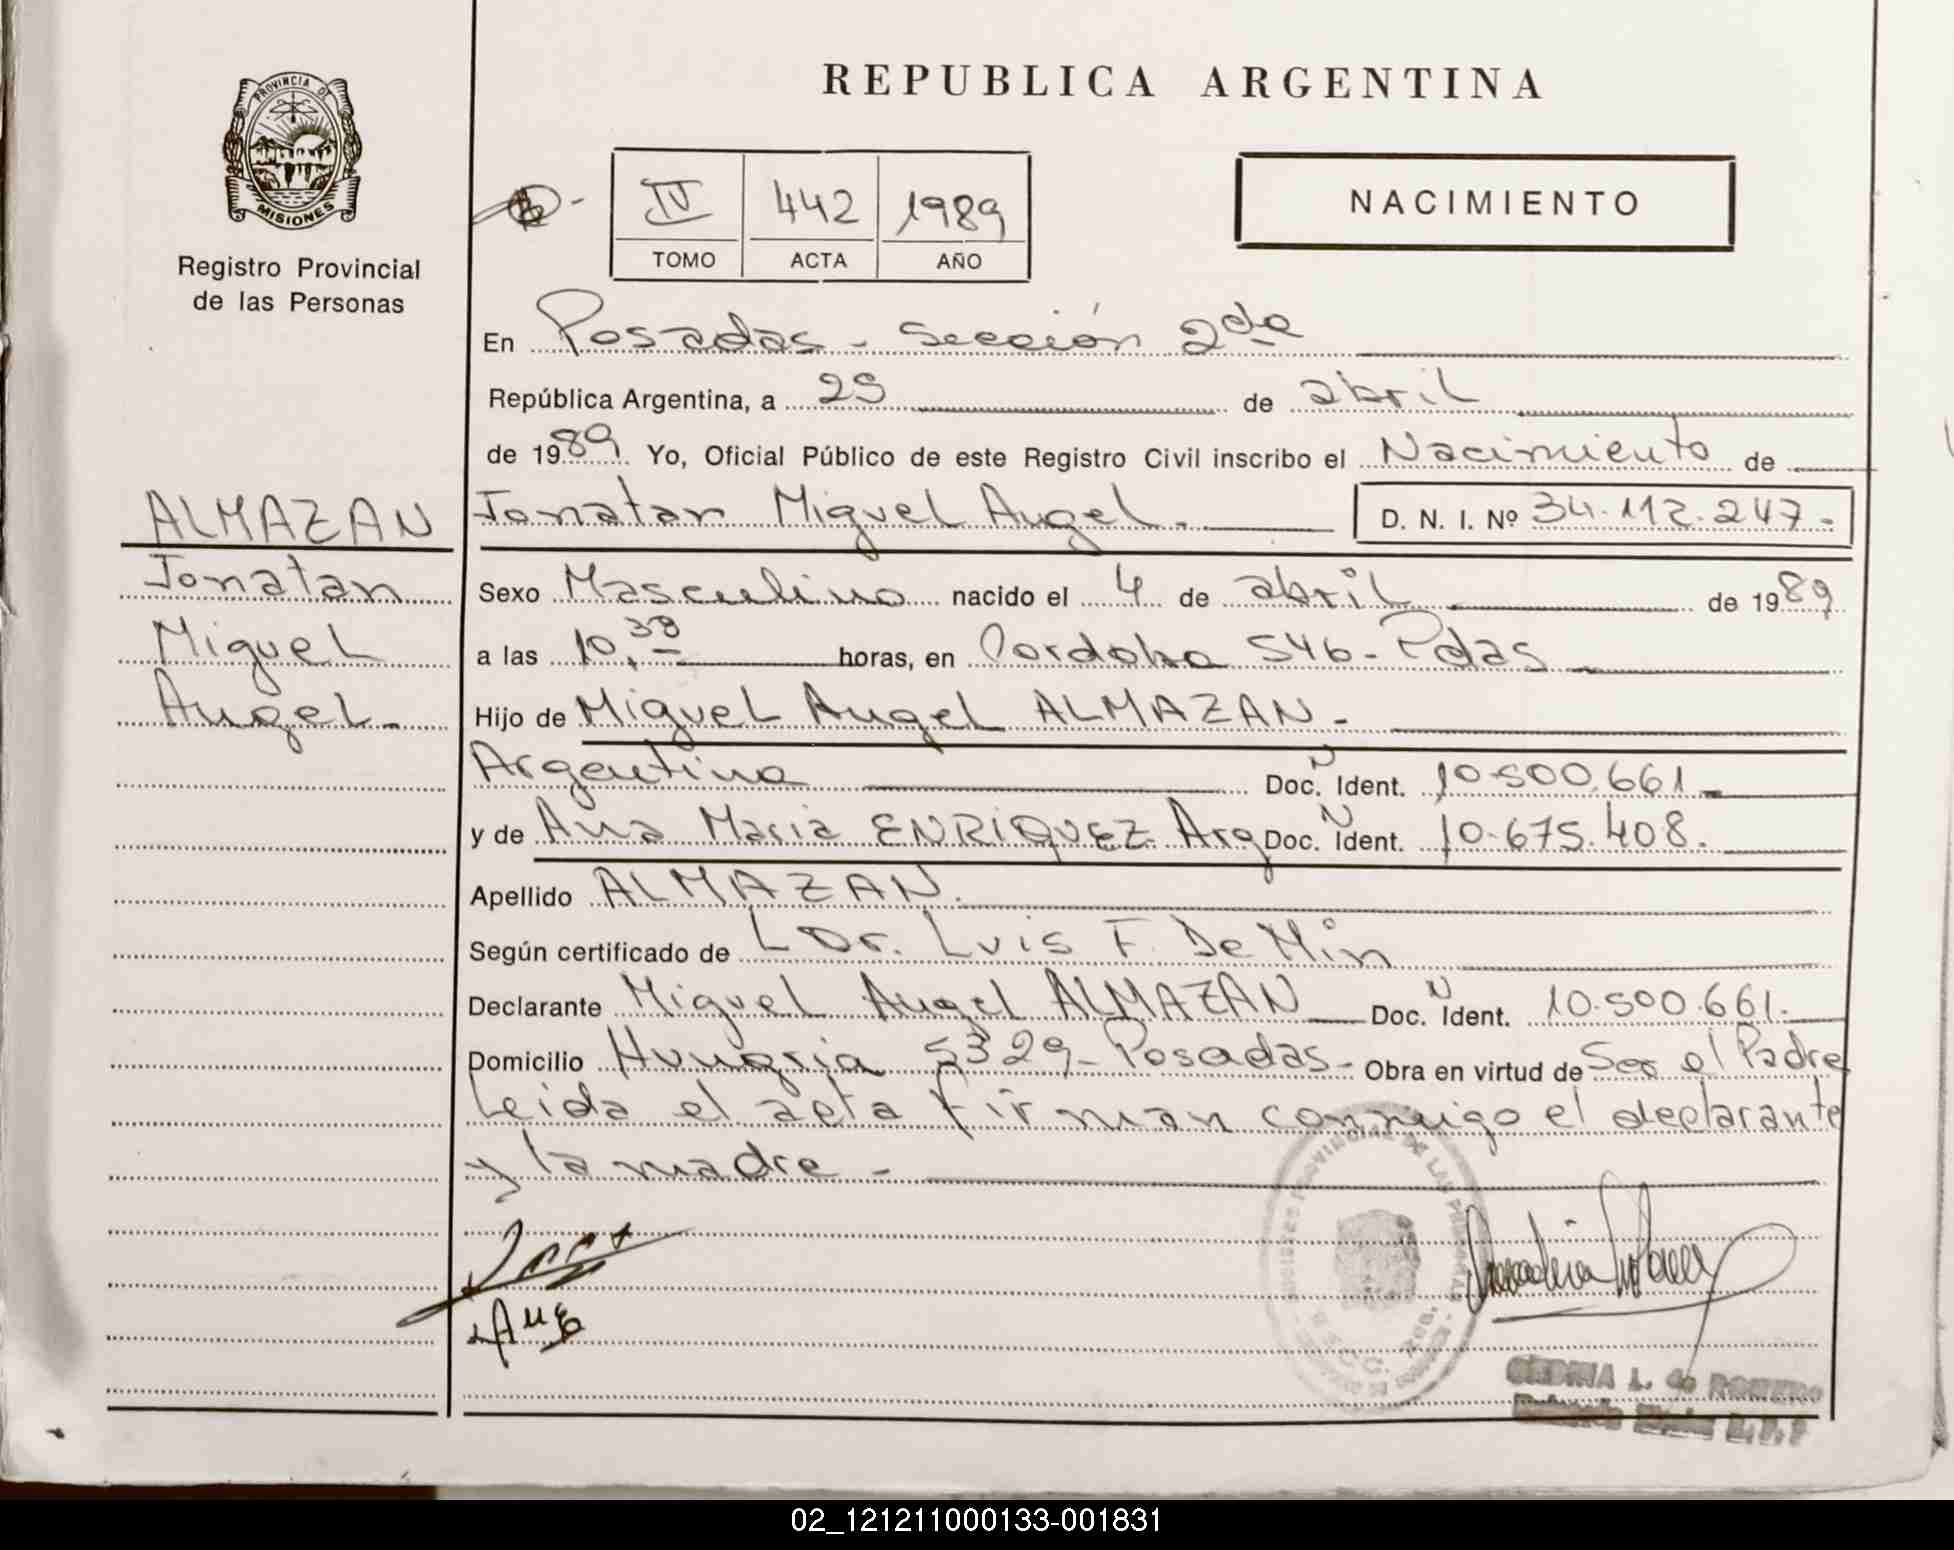 PROVINCIA DE
MISIONES
Registro Provincial
de las Personas
REPUBLICA ARGENTINA
IV 442 1989
TOMO ACTA AÑO
NACIMIENTO
En Posadas - Sección 2da
República Argentina, a 25 de abril
de 1989 Yo, Oficial Público de este Registro Civil inscribo el Nacimiento de
ALMAZAN
Jonatan
Miguel
Angel.-
Jonatan Miguel Angel.- D. N. I. Nº 34.112.247.-
Sexo Masculino nacido el 4 de abril de 1989
a las 10,38 horas, en Cordoba 546 - Pdas
Hijo de Miguel Angel ALMAZAN.-
Argentino Doc. N Ident. 10.500.661.-
y de Ana Maria ENRIQUEZ. Arg Doc. N Ident. 10.675.408.
Apellido ALMAZAN.
Según certificado de L Dr. Luis F. De Min
Declarante Miguel Angel ALMAZAN Doc. N Ident. 10.500.661.-
Domicilio Hungria 5329 - Posadas - Obra en virtud de Ser el Padre
Leida el acta firman conmigo el declarante
y la madre -
L. de ROMERO
02_121211000133-001831